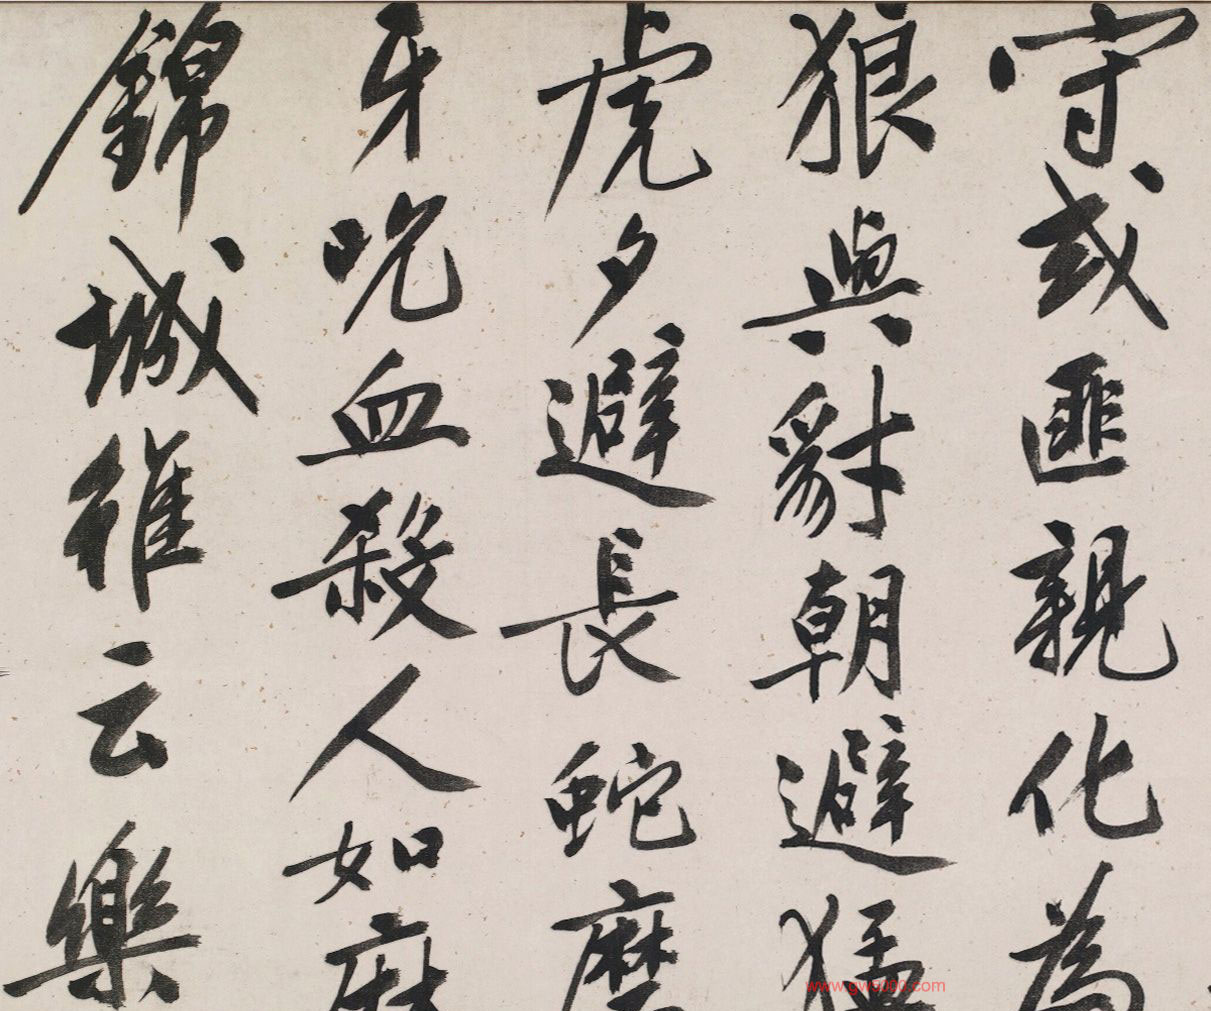 守或匪親化為
狼與豺朝避猛
虎夕避長蛇磨
牙吮血殺人如麻
錦城雖云樂
www.gw3000.com